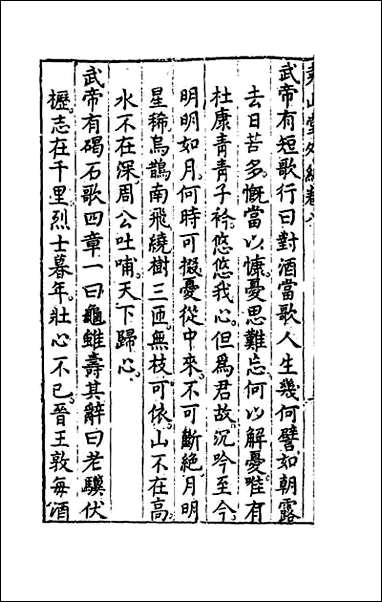 武帝有短歌行曰對酒當歌人生幾何譬如朝露
去日苦多慨當以慷憂思難忘何以解憂唯有
杜康青青子衿悠悠我心但爲君故沉吟至今
明明如月何時可掇憂從中來不可斷絕月明
星稀烏鵲南飛繞樹三匝無枝可依山不在高
水不在深周公吐哺天下歸心
武帝有碣石歌四章一曰龜雖壽其辭曰老驥伏
櫪志在千里烈士暮年壯心不已晉王敦每酒